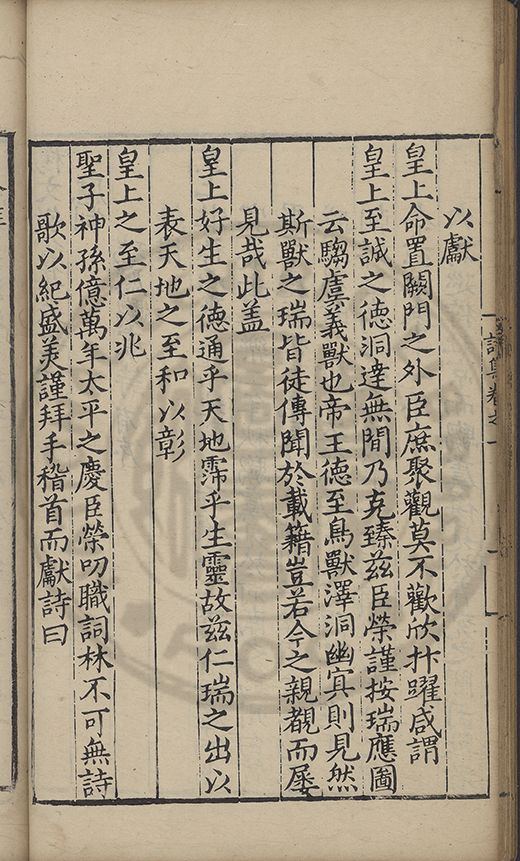 以獻
皇上命置闕門之外臣庶聚觀莫不歡欣抃躍咸謂
皇上至誠之德洞達無間乃克臻兹臣榮謹按瑞應圖
云騶虞義獸也帝王德至鳥獸澤洞幽㝠則見然
斯獸之瑞皆徒傳聞於載籍豈若今之親覩而屢
見哉此盖
皇上好生之德通乎天地霈乎生靈故兹仁瑞之出以
表天地之至和以彰
皇上之至仁以兆
聖子神孫億萬年太平之慶臣榮叨職詞林不可無詩
歌以紀盛美謹拜手稽首而獻詩曰
詩集卷之一